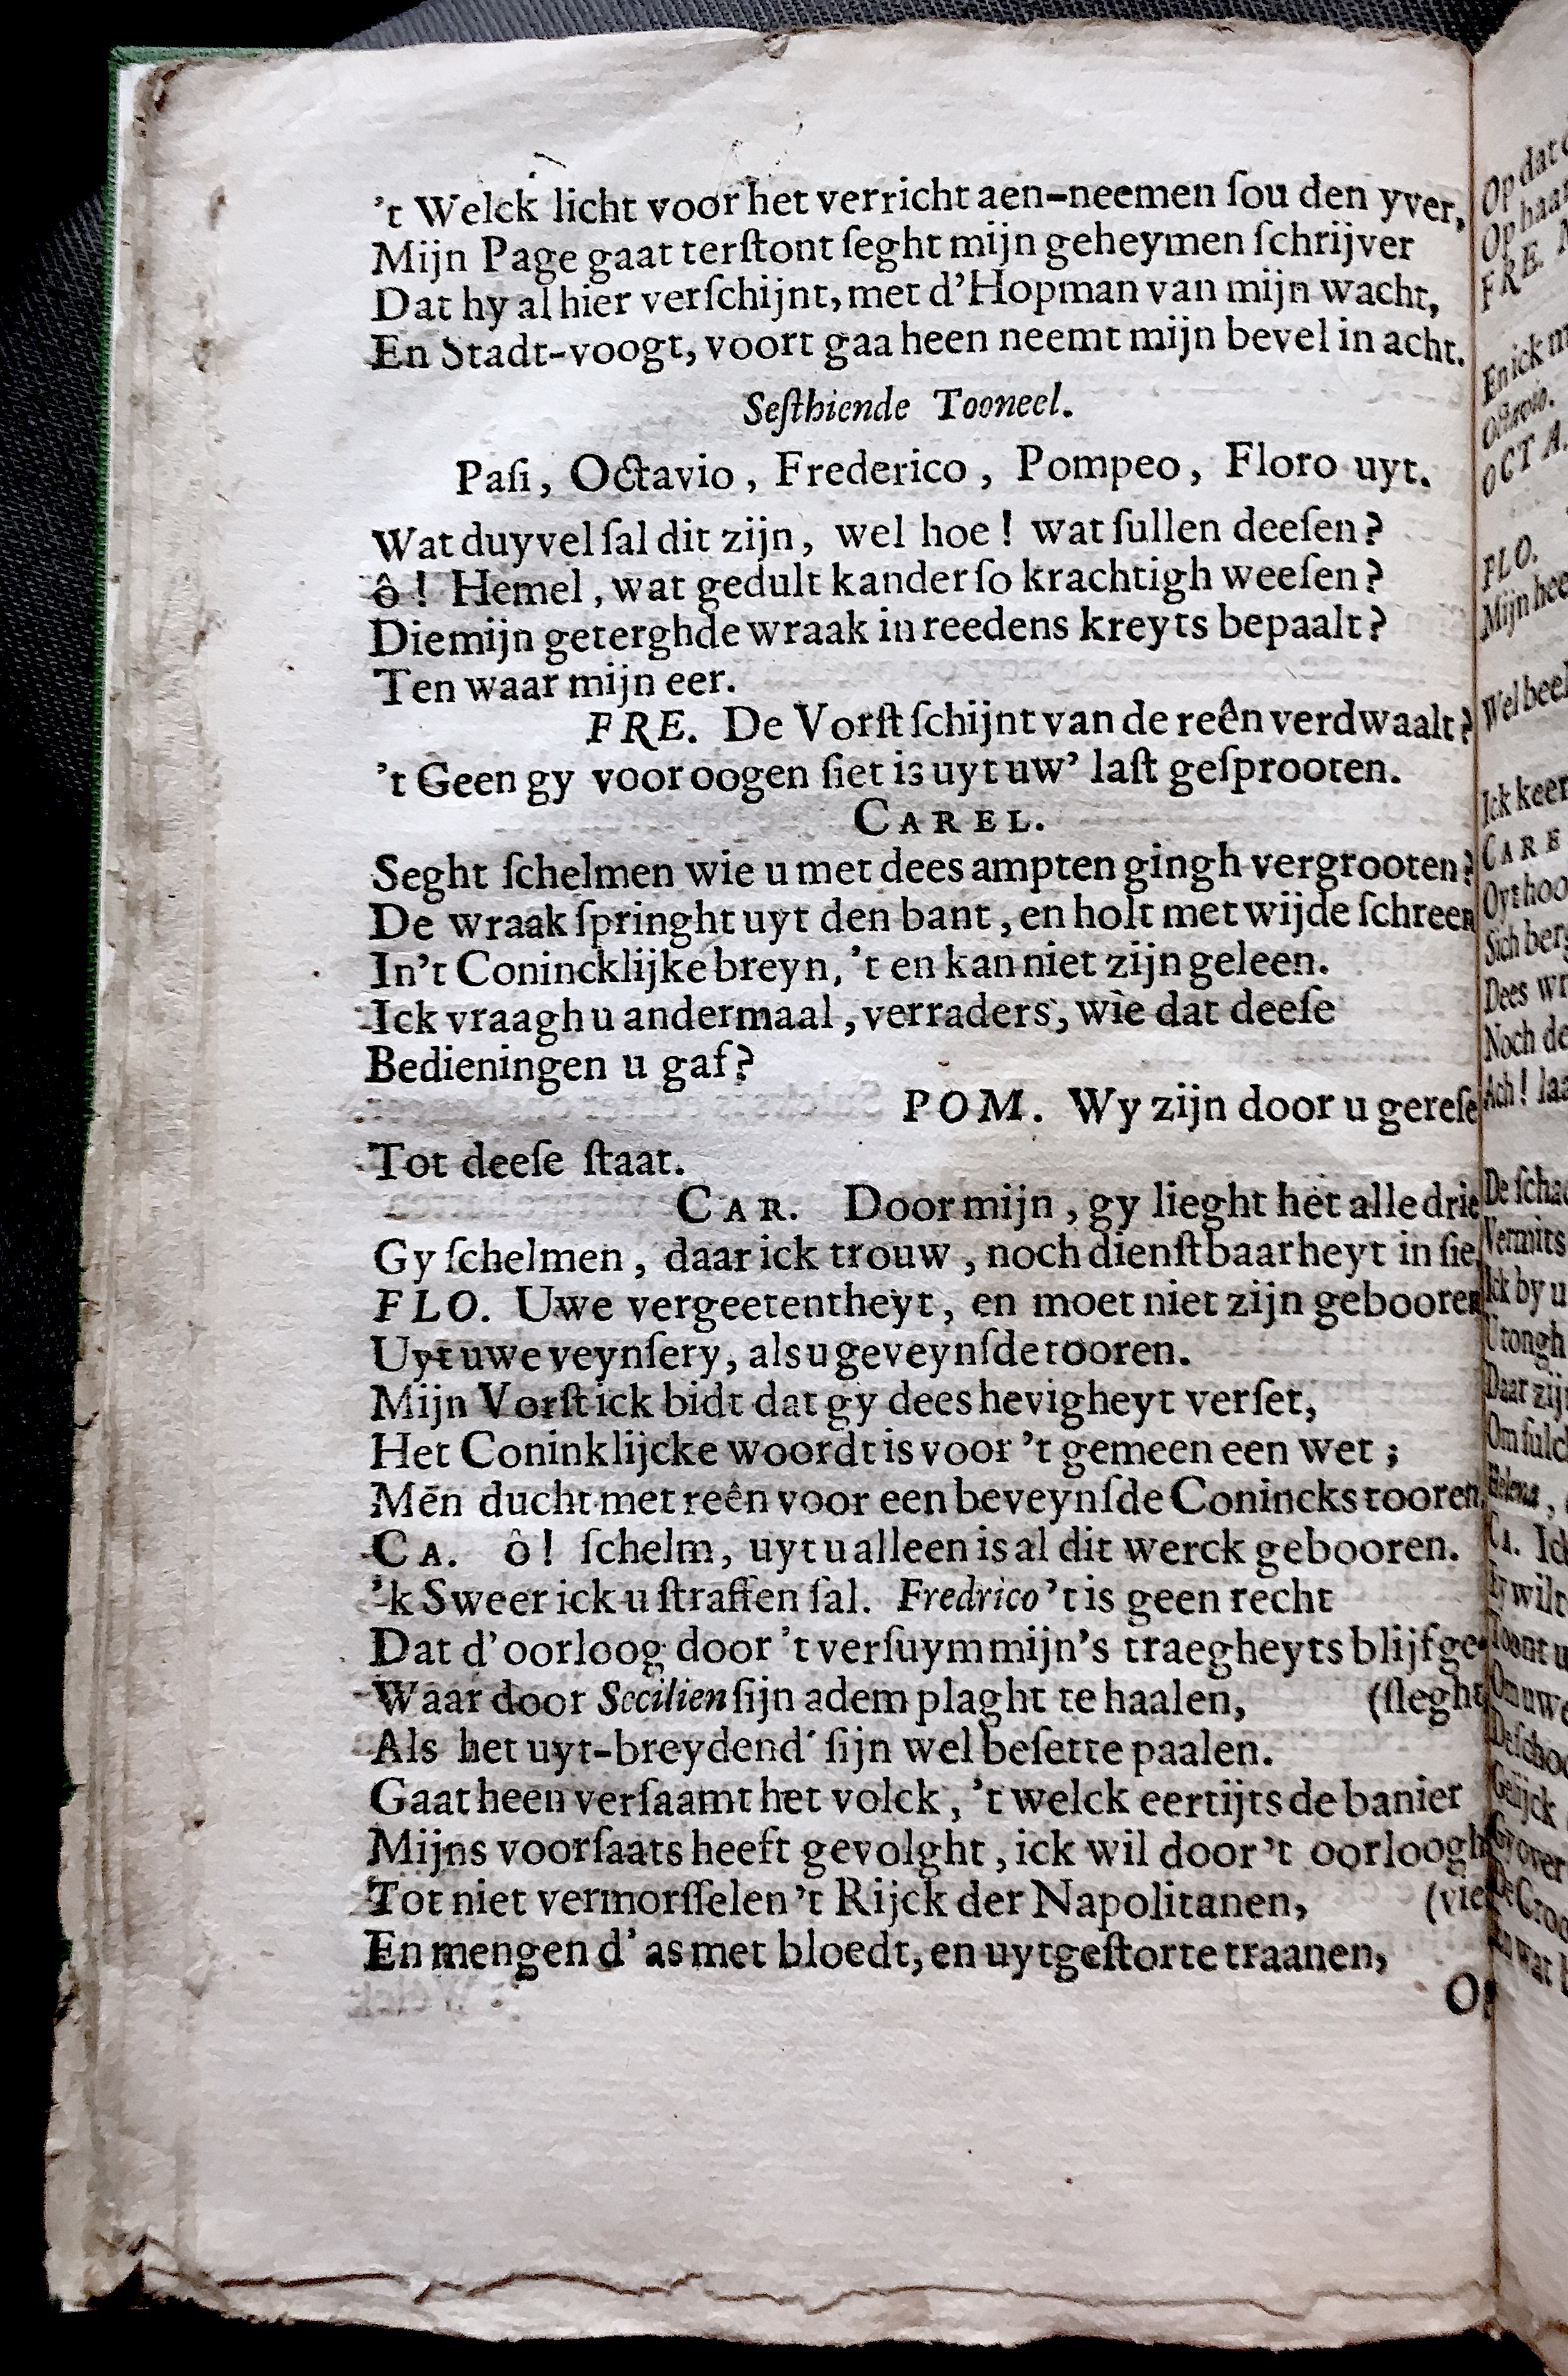 't Welck licht voor het verricht aen-neemen ſou den yver,
Mijn Page gaat terſtont ſeght mijn geheymen ſchrijver
Dat hy al hier verſchijnt, met d'Hopman van mijn wacht,
En Stadt-voogt, voort gaa heen neemt mijn bevel in acht.
Seſthiende Tooneel.
Paſi, Octavio, Frederico, Pompeo, Floro uyt.
Wat duyvel ſal dit zijn, wel hoe! wat ſullen deeſen?
ô! Hemel, wat gedult kander ſo krachtigh weeſen?
Die mijn geterghde wraak in reedens kreyts bepaalt?
Ten waar mijn eer.
FRE. De Vorſt ſchijnt van de reên verdwaalt?
't Geen gy voor oogen ſiet is uyt uw' laſt geſprooten.
CAREL.
Seght ſchelmen wie u met dees ampten gingh vergrooten?
De wraak ſpringht uyt den bant, en holt met wijde ſchreen
In't Conincklijke breyn, 't en kan niet zijn geleen.
Ick vraagh u andermaal, verraders, wie dat deeſe
Bedieningen u gaf?
POM. Wy zijn door u gereſe
Tot deeſe ſtaat.
CAR. Door mijn, gy lieght het alle drie
Gy ſchelmen, daar ick trouw, noch dienſtbaarheyt in ſie.
FLO. Uwe vergeetentheyt, en moet niet zijn gebooren
Uyt uwe veynſery, als u geveynſde tooren.
Mijn Vorſt ick bidt dat gy dees hevigheyt verſet,
Het Coninklijcke woordt is voor 't gemeen een wet;
Mēn ducht met reên voor een beveynſde Conincks tooren
CA. ô! ſchelm, uyt u alleen is al dit werck gebooren.
'k Sweer ick u ſtraffen ſal. Fredrico 't is geen recht
Dat d'oorloog door 't verſuym mijn's traegheyts blijf ge-
Waar door Sccilien ſijn adem plaght te haalen, (ſleght
Als het uyt-breydend' ſijn wel beſette paalen.
Gaat heen verſaamt het volck, 't welck eertijts de banier
Mijns voorſaats heeft gevolght, ick wil door 't oorloogh
Tot niet vermorſſelen 't Rijck der Napolitanen, (vie
En mengen d'as met bloedt, en uytgeſtorte traanen,